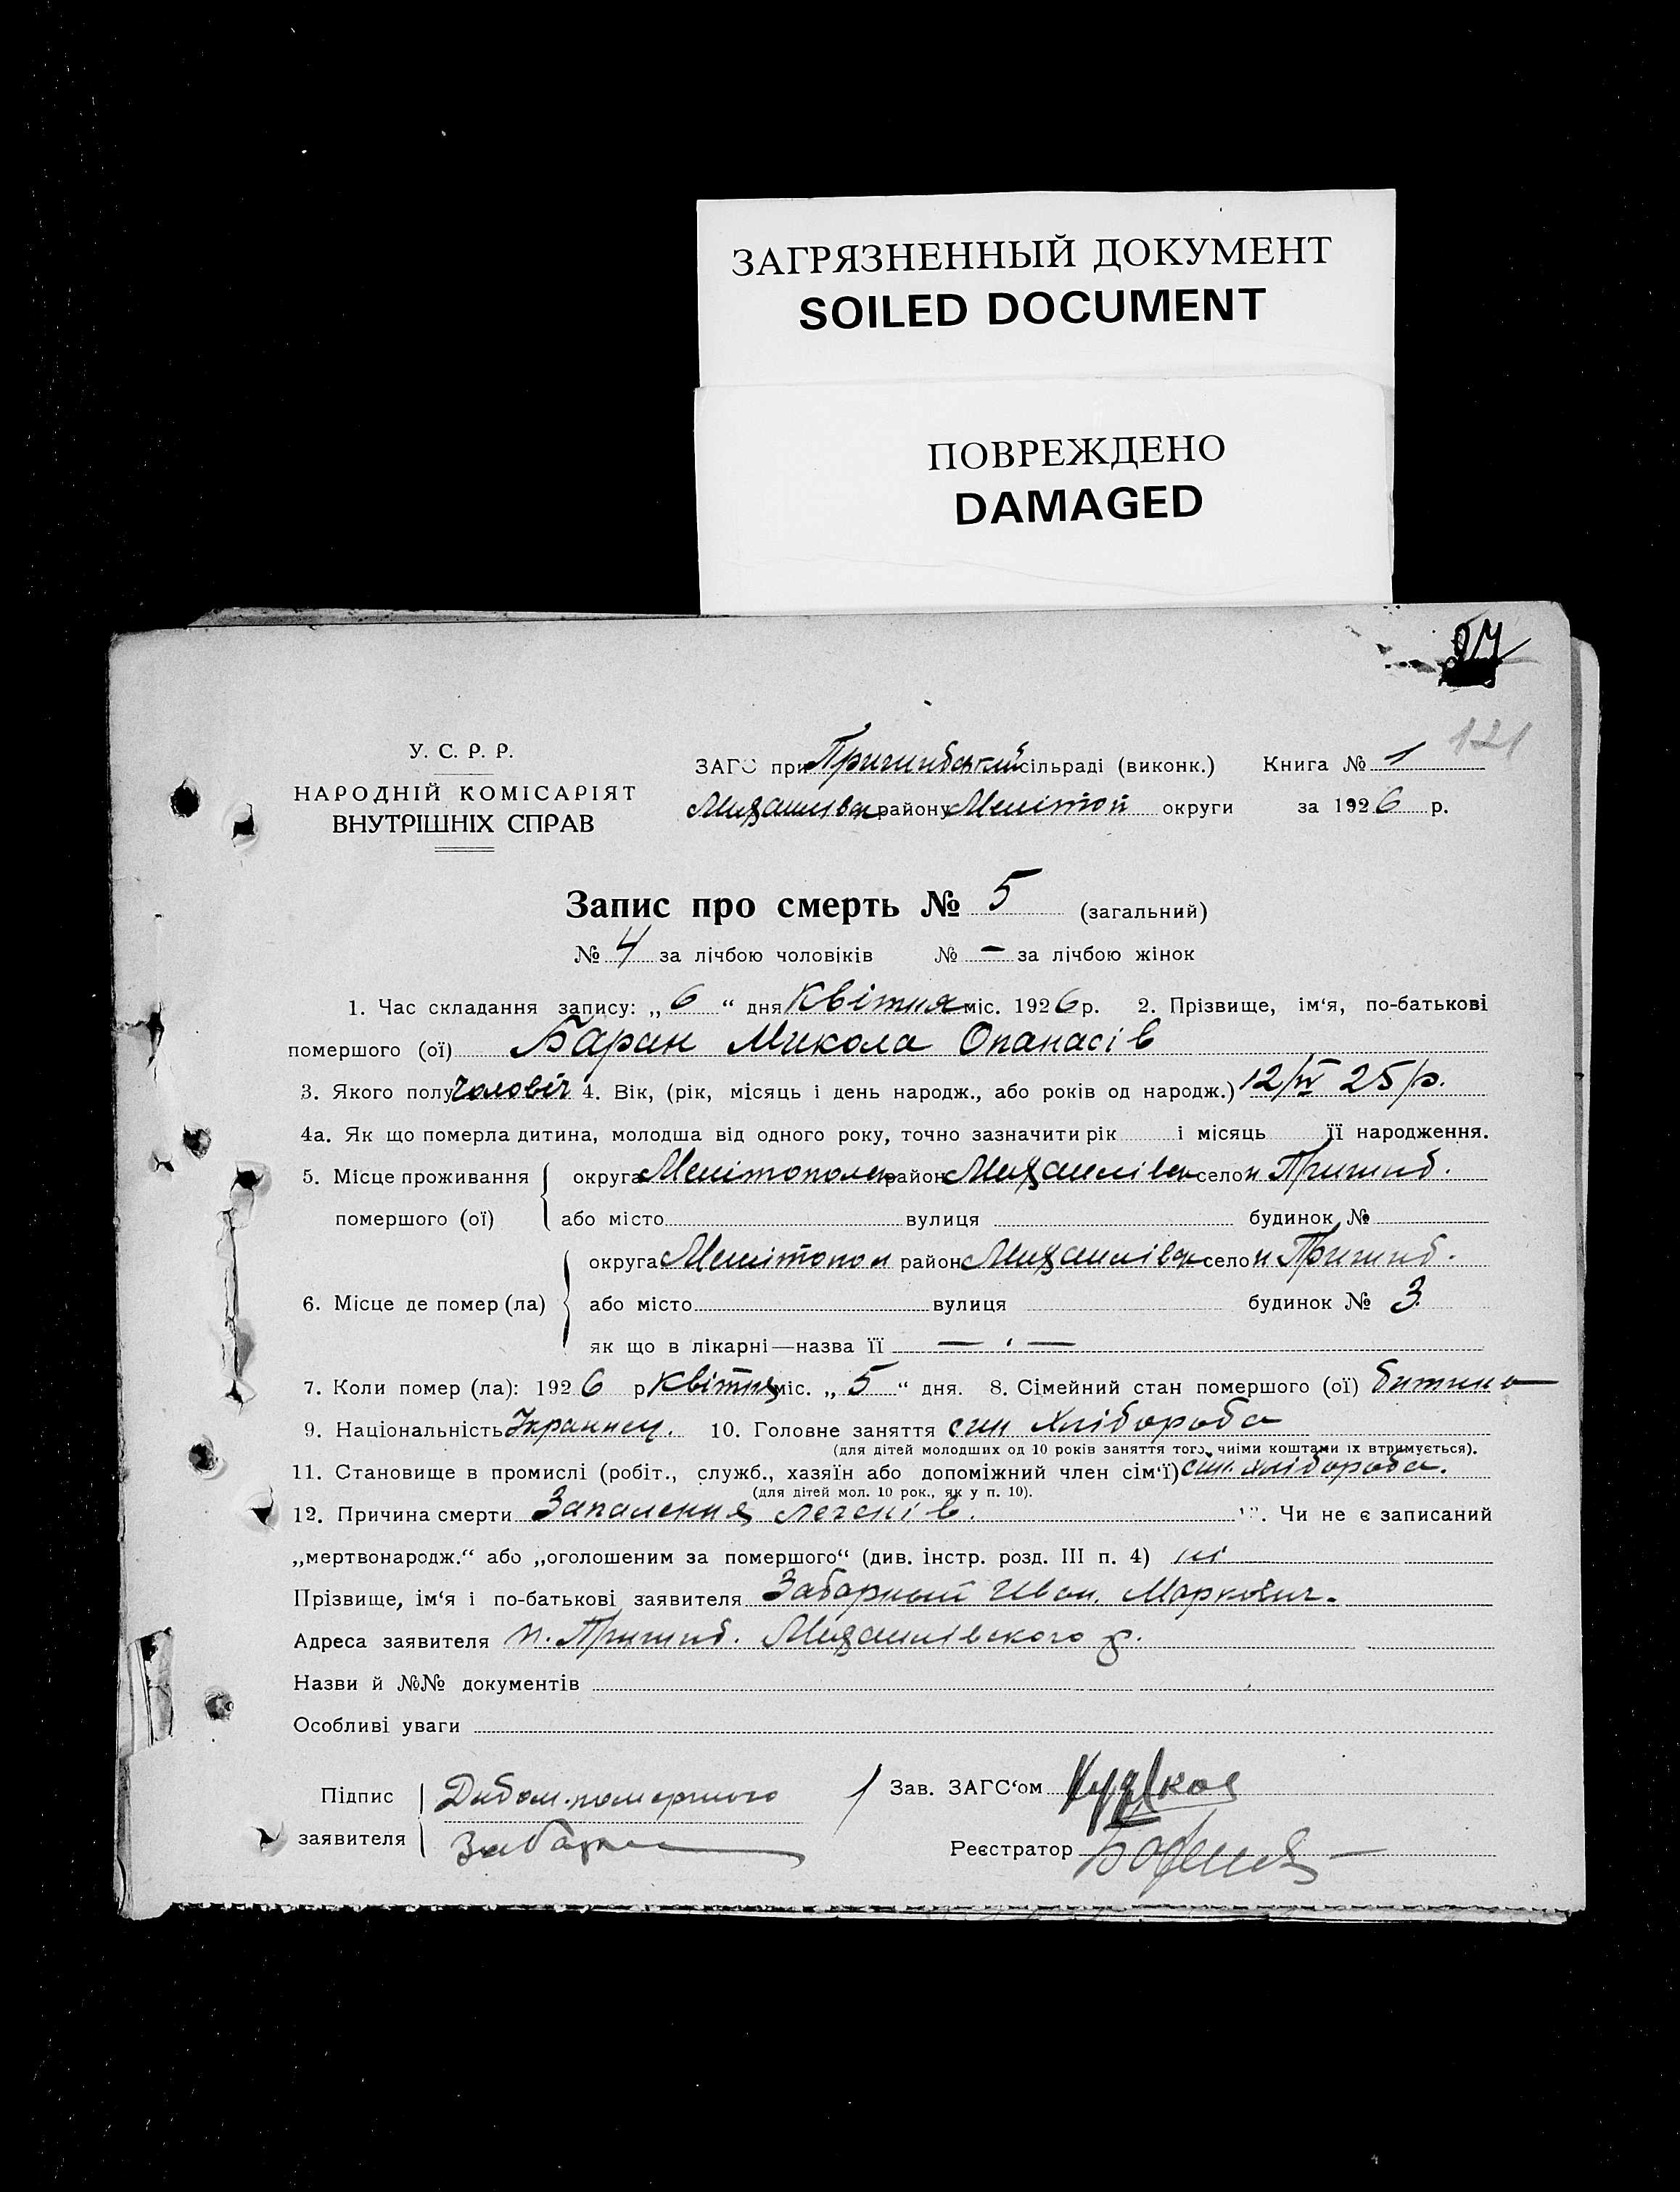 ЗАГРЯЗНЕННЫЙ ДОКУМЕНТ
SOILED DOCUMENT
ПОВРЕЖДЕНО
DAMAGED
121
У. С. Р. Р.
НАРОДНІЙ КОМІСАРІЯТ
ВНУТРІШНІХ СПРАВ
ЗАГС при Пришибський сільраді (виконк.) Книга № 1
Михайлівск району Мелітоп округи за 1926 р.
Запис про смерть № 5 (загальний)
№ 4 за лічбою чоловіків № — за лічбою жінок
1. Час складання запису: „ 6 “ дня Квітня міс. 1926 р. 2. Прізвище, ім‘я, по-батькові
помершого (ої) Баран Микола Опанасів
3. Якого полу чоловіч 4. Вік, (рік, місяць і день народж., або років од народж.) 12/IV 25 р.
4а. Як що померла дитина, молодша від одного року, точно зазначити рік і місяць її народження.
5. Місце проживання округа Мелітополь район Михайлівск село н Пришиб.
помершого (ої) або місто вулиця будинок №
округа Мелітопол район Михайлівск село н Пришиб.
6. Місце де помер (ла) або місто вулиця будинок № 3
як що в лікарні—назва її — . —
7. Коли помер (ла): 1926 р Квітня міс. „ 5 “ дня. 8. Сімейний стан помершого (ої)
9. Національність Українец. 10. Головне заняття син хлібороба
(для дітей молодших од 10 років заняття того, чиїми коштами їх втримується).
11. Становище в промислі (робіт., служб., хазяїн або допоміжний член сім‘ї) син. хлібороба.
(для дітей мол. 10 рок., як у п. 10).
12. Причина смерти Запалення легенів. Чи не є записаний
„мертвонародж.“ або „оголошеним за помершого“ (див. інстр. розд. III п. 4) ні
Прізвище, ім‘я і по-батькові заявителя Заборный Иван. Маркович.
Адреса заявителя н. Пришиб. Михайлівского р.
Назви й №№ документів
Особливі уваги
Підпис заявителя
Зав. ЗАГС‘ом
Реєстратор